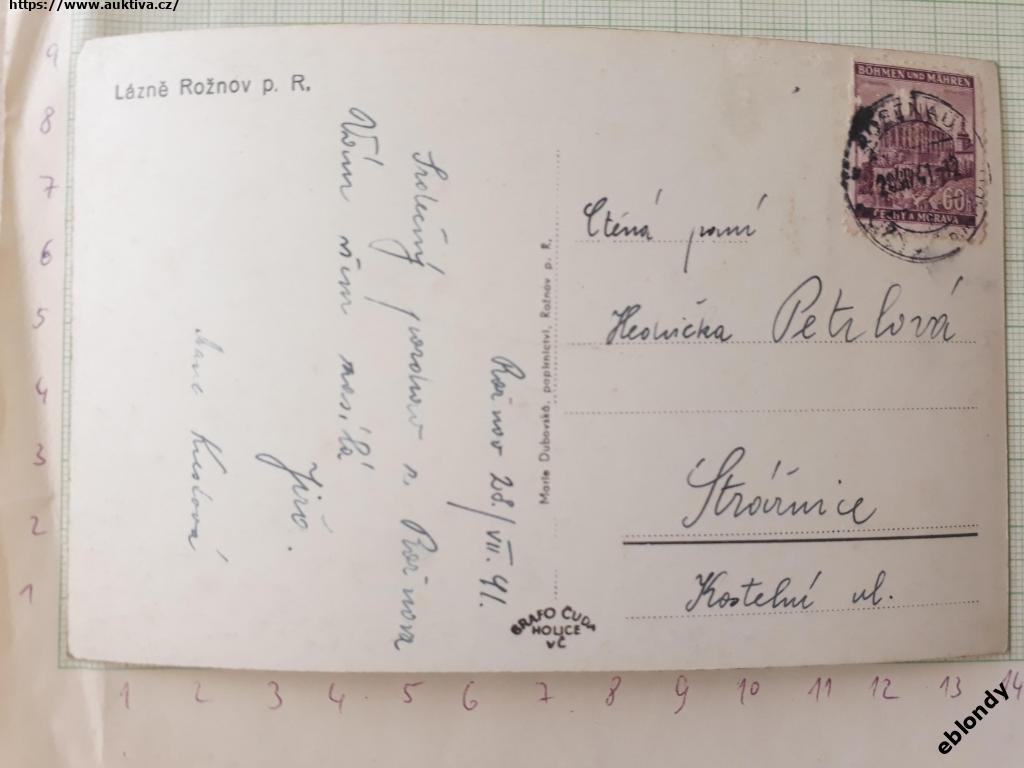 https://www.auktiva.cz/
Lázně Rožnov p. R.
BÖHMEN UND MÄHREN
60h
ČECHY A MORAVA
Rožnov 28/VII. 41.
Srdečný pozdrav z Rožnova
Vám všem posílá
Jiří.
Marie Dubovská, papírnictví, Rožnov p. R.
GRAFO ČUDA
HOLICE
VČ
Ctěná paní
Hedvička Petrlová
Strážnice
Kostelní ul.
9
8
7
6
5
4
3
2
1
1 2 3 4 5 6 7 8 9 10 11 12 13 14
eblondy